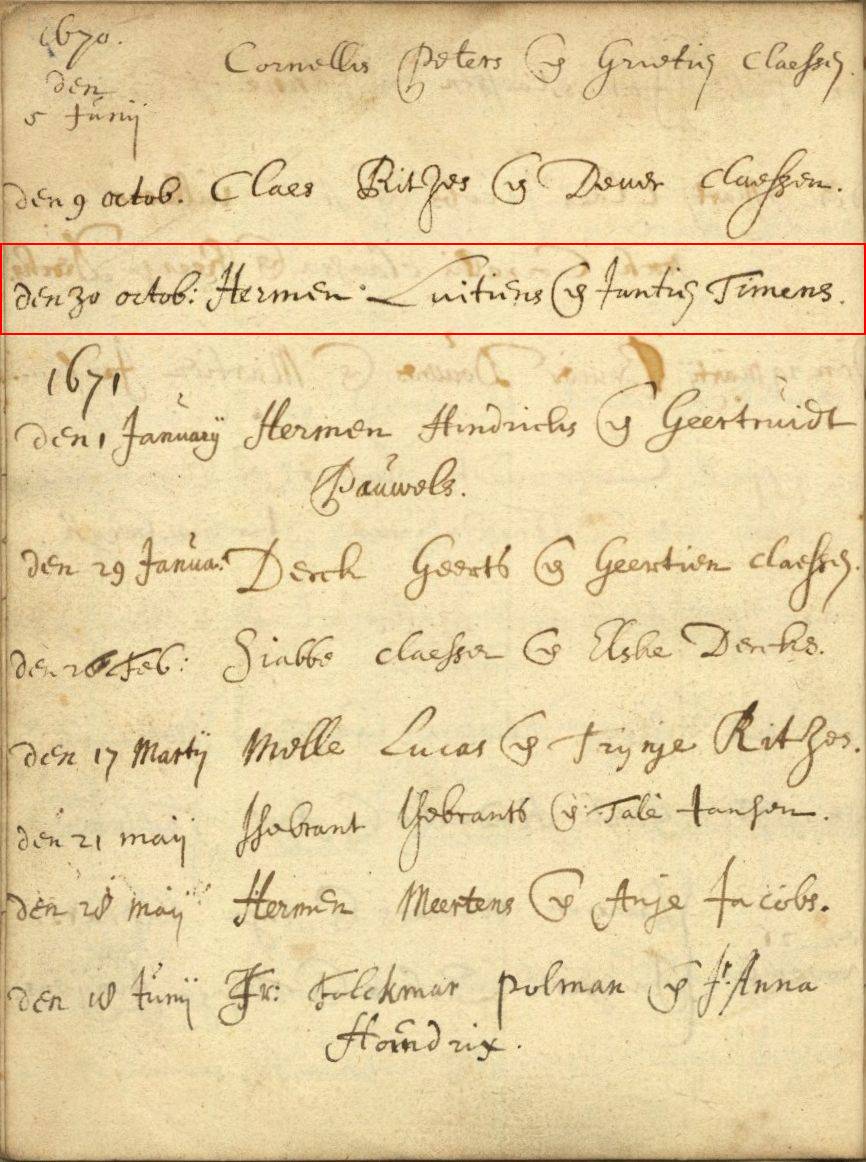 1670.
den
5 Junij
Cornellis Peters & Grietien Claessen
den 9 octob. Claes Ritzes & Dever claessen.
den 30 octob: Hermen Luitiens & Jantien Timens.
1671
den 1 January Hermen Hindrichs & Geertruidt
Pauwels.
den 29 Janua: Derck Geerts & Geertien claessen.
den 26 Feb: Siabbe claessen & Elske Dercks.
den 17 Martij Melle Lucas & Trijnje Ritzes.
den 21 maij Isebrant Isebrants & Tale Jansen.
den 28 maij Hermen Meertens & Anje Jacobs.
den 18 Junij Jr: Folckmar polman & Jr. Anna